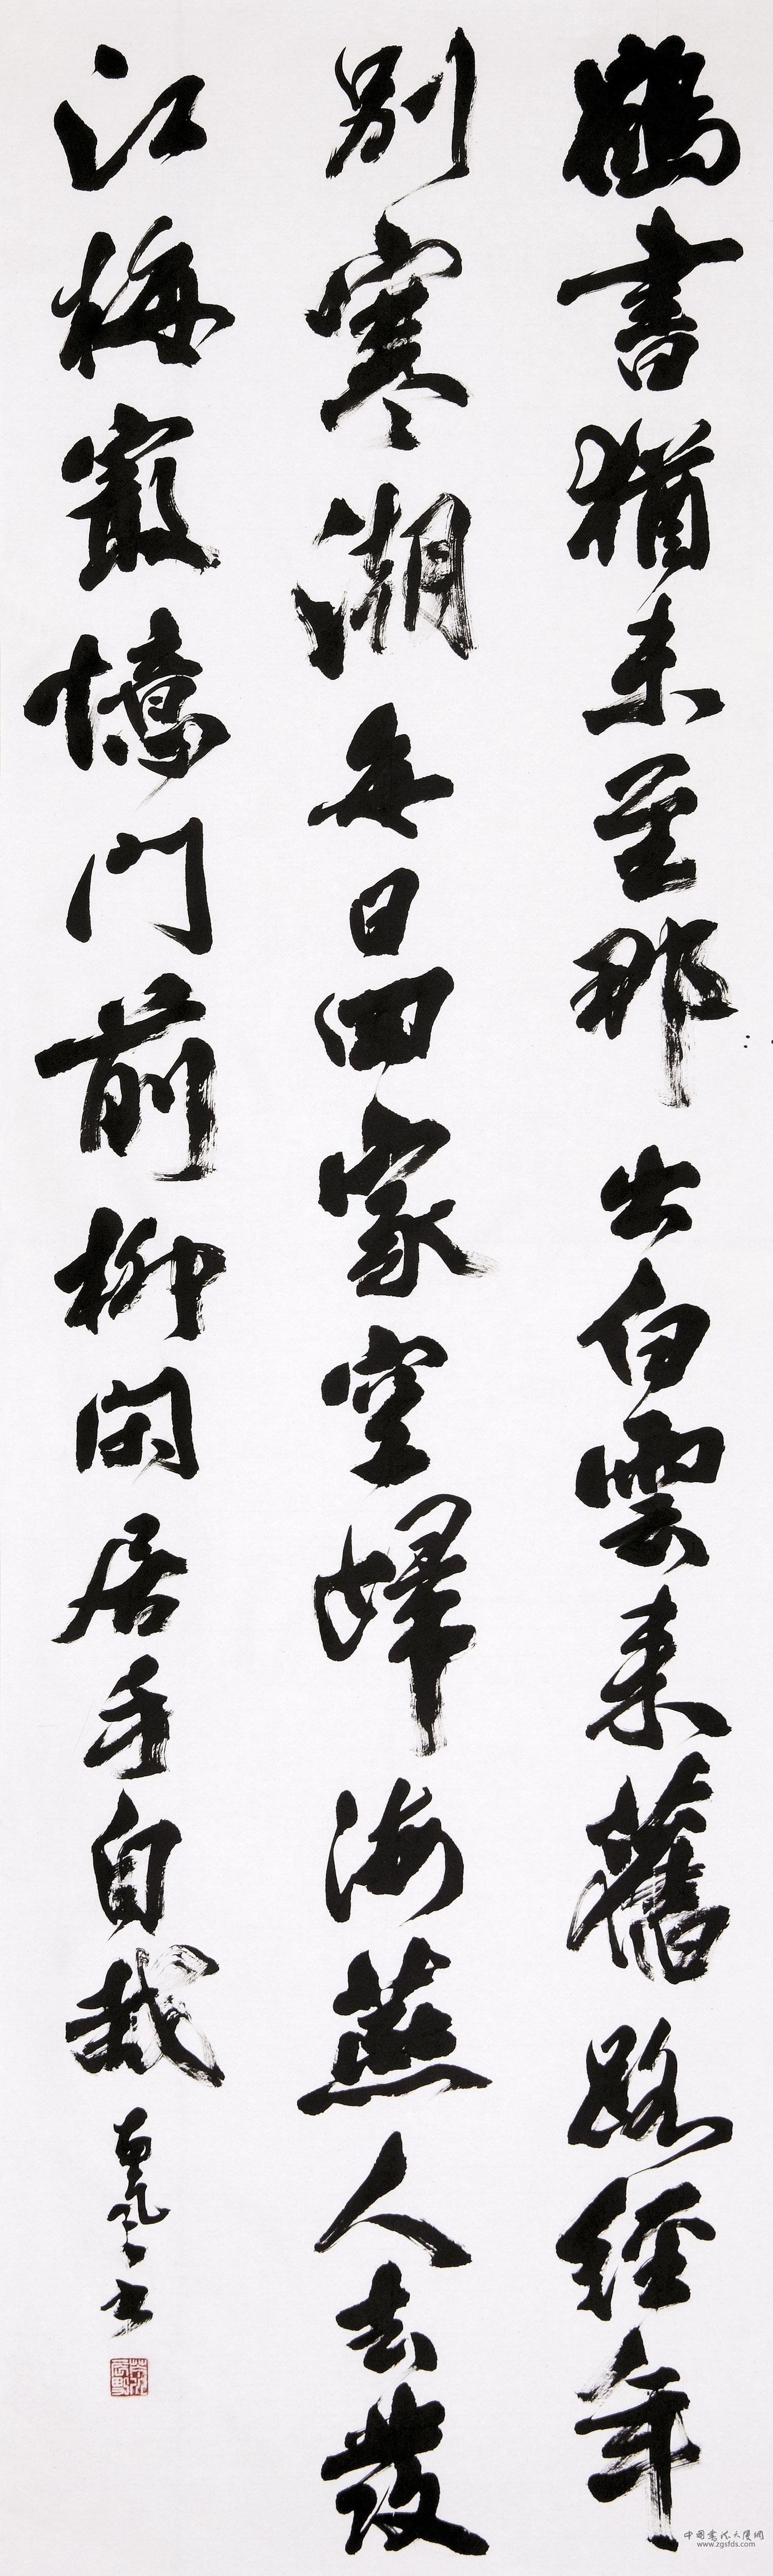 鶴書猶未至那出白雲來舊路經年
別寒潮每日回家空歸海燕人去發
江梅最憶門前柳閑居手自栽
中國書法大廈網
www.zgsfds.com